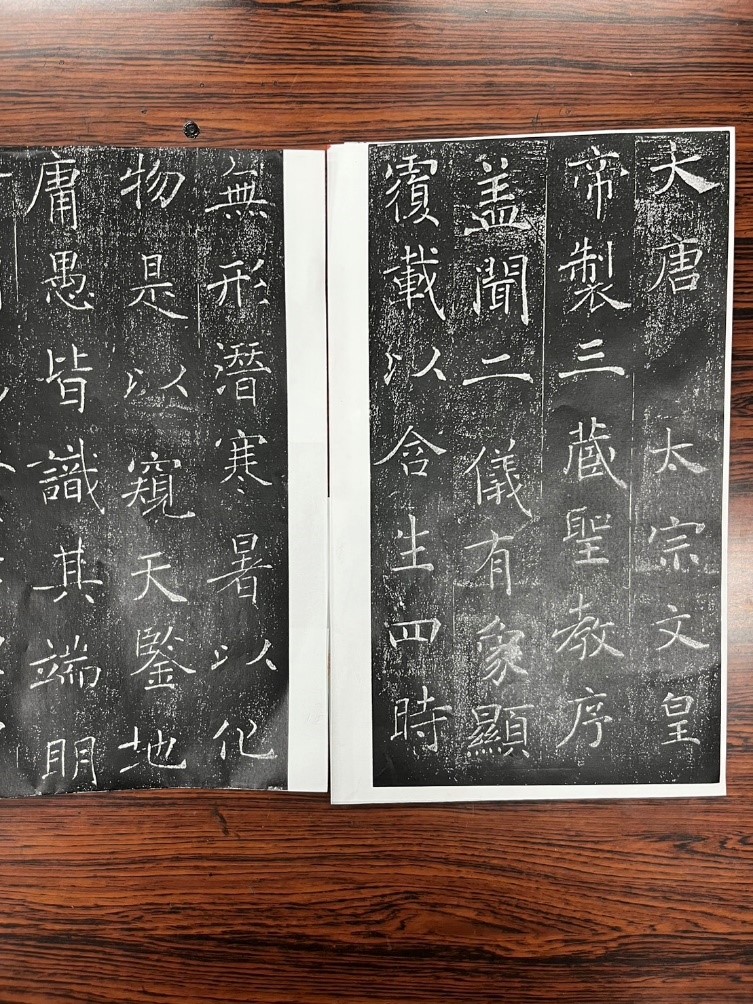 大唐 太宗文皇
帝製三蔵聖教序
盖聞二儀有象顯
覆載以含生四時
無形潛寒暑以化
物是以窺天鑒地
庸愚皆識其端明